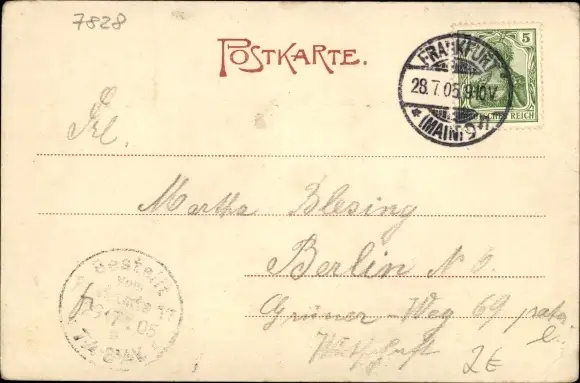 7828
POSTKARTE.
5
DEUTSCHES REICH
FRANKFURT
28.7.05.9-10V.
* (MAIN) 9 *
Frl.
Martha Blesing
Berlin N.O.
Grüner-Weg 69 part.
Bestellt
vom
29.7.05
2E